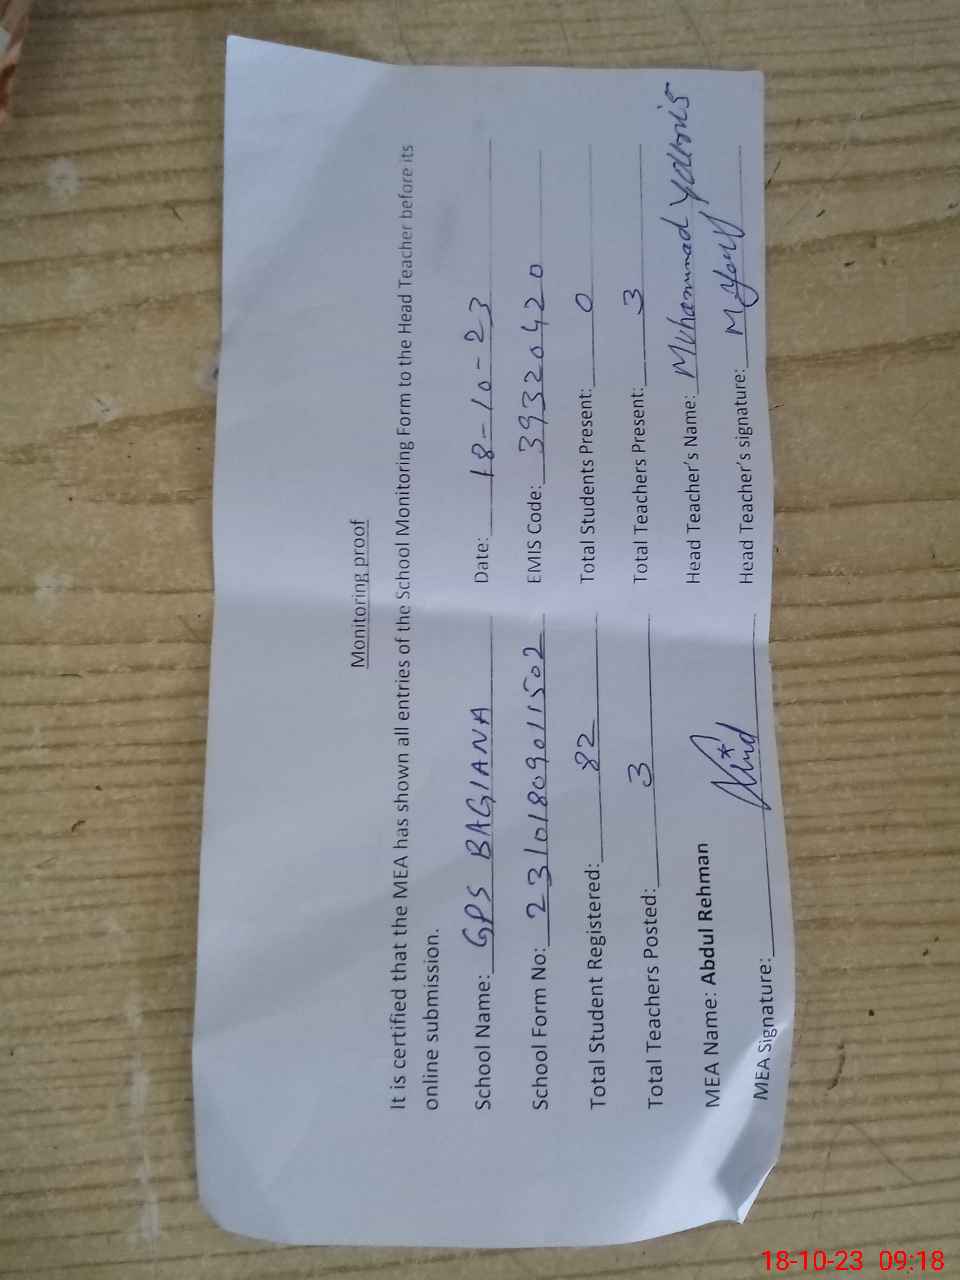 Monitoring proof
It is certified that the MEA has shown all entries of the School Monitoring Form to the Head Teacher before its
online submission.
School Name: GPS BAGIANA Date: 18-10-23
School Form No: 23101809011502 EMIS Code: 39320420
Total Student Registered: 82 Total Students Present: 0
Total Teachers Posted: 3 Total Teachers Present: 3
MEA Name: Abdul Rehman Head Teacher's Name: Muhammad Younis
MEA Signature: Head Teacher's signature: M Younis
18-10-23 09:18